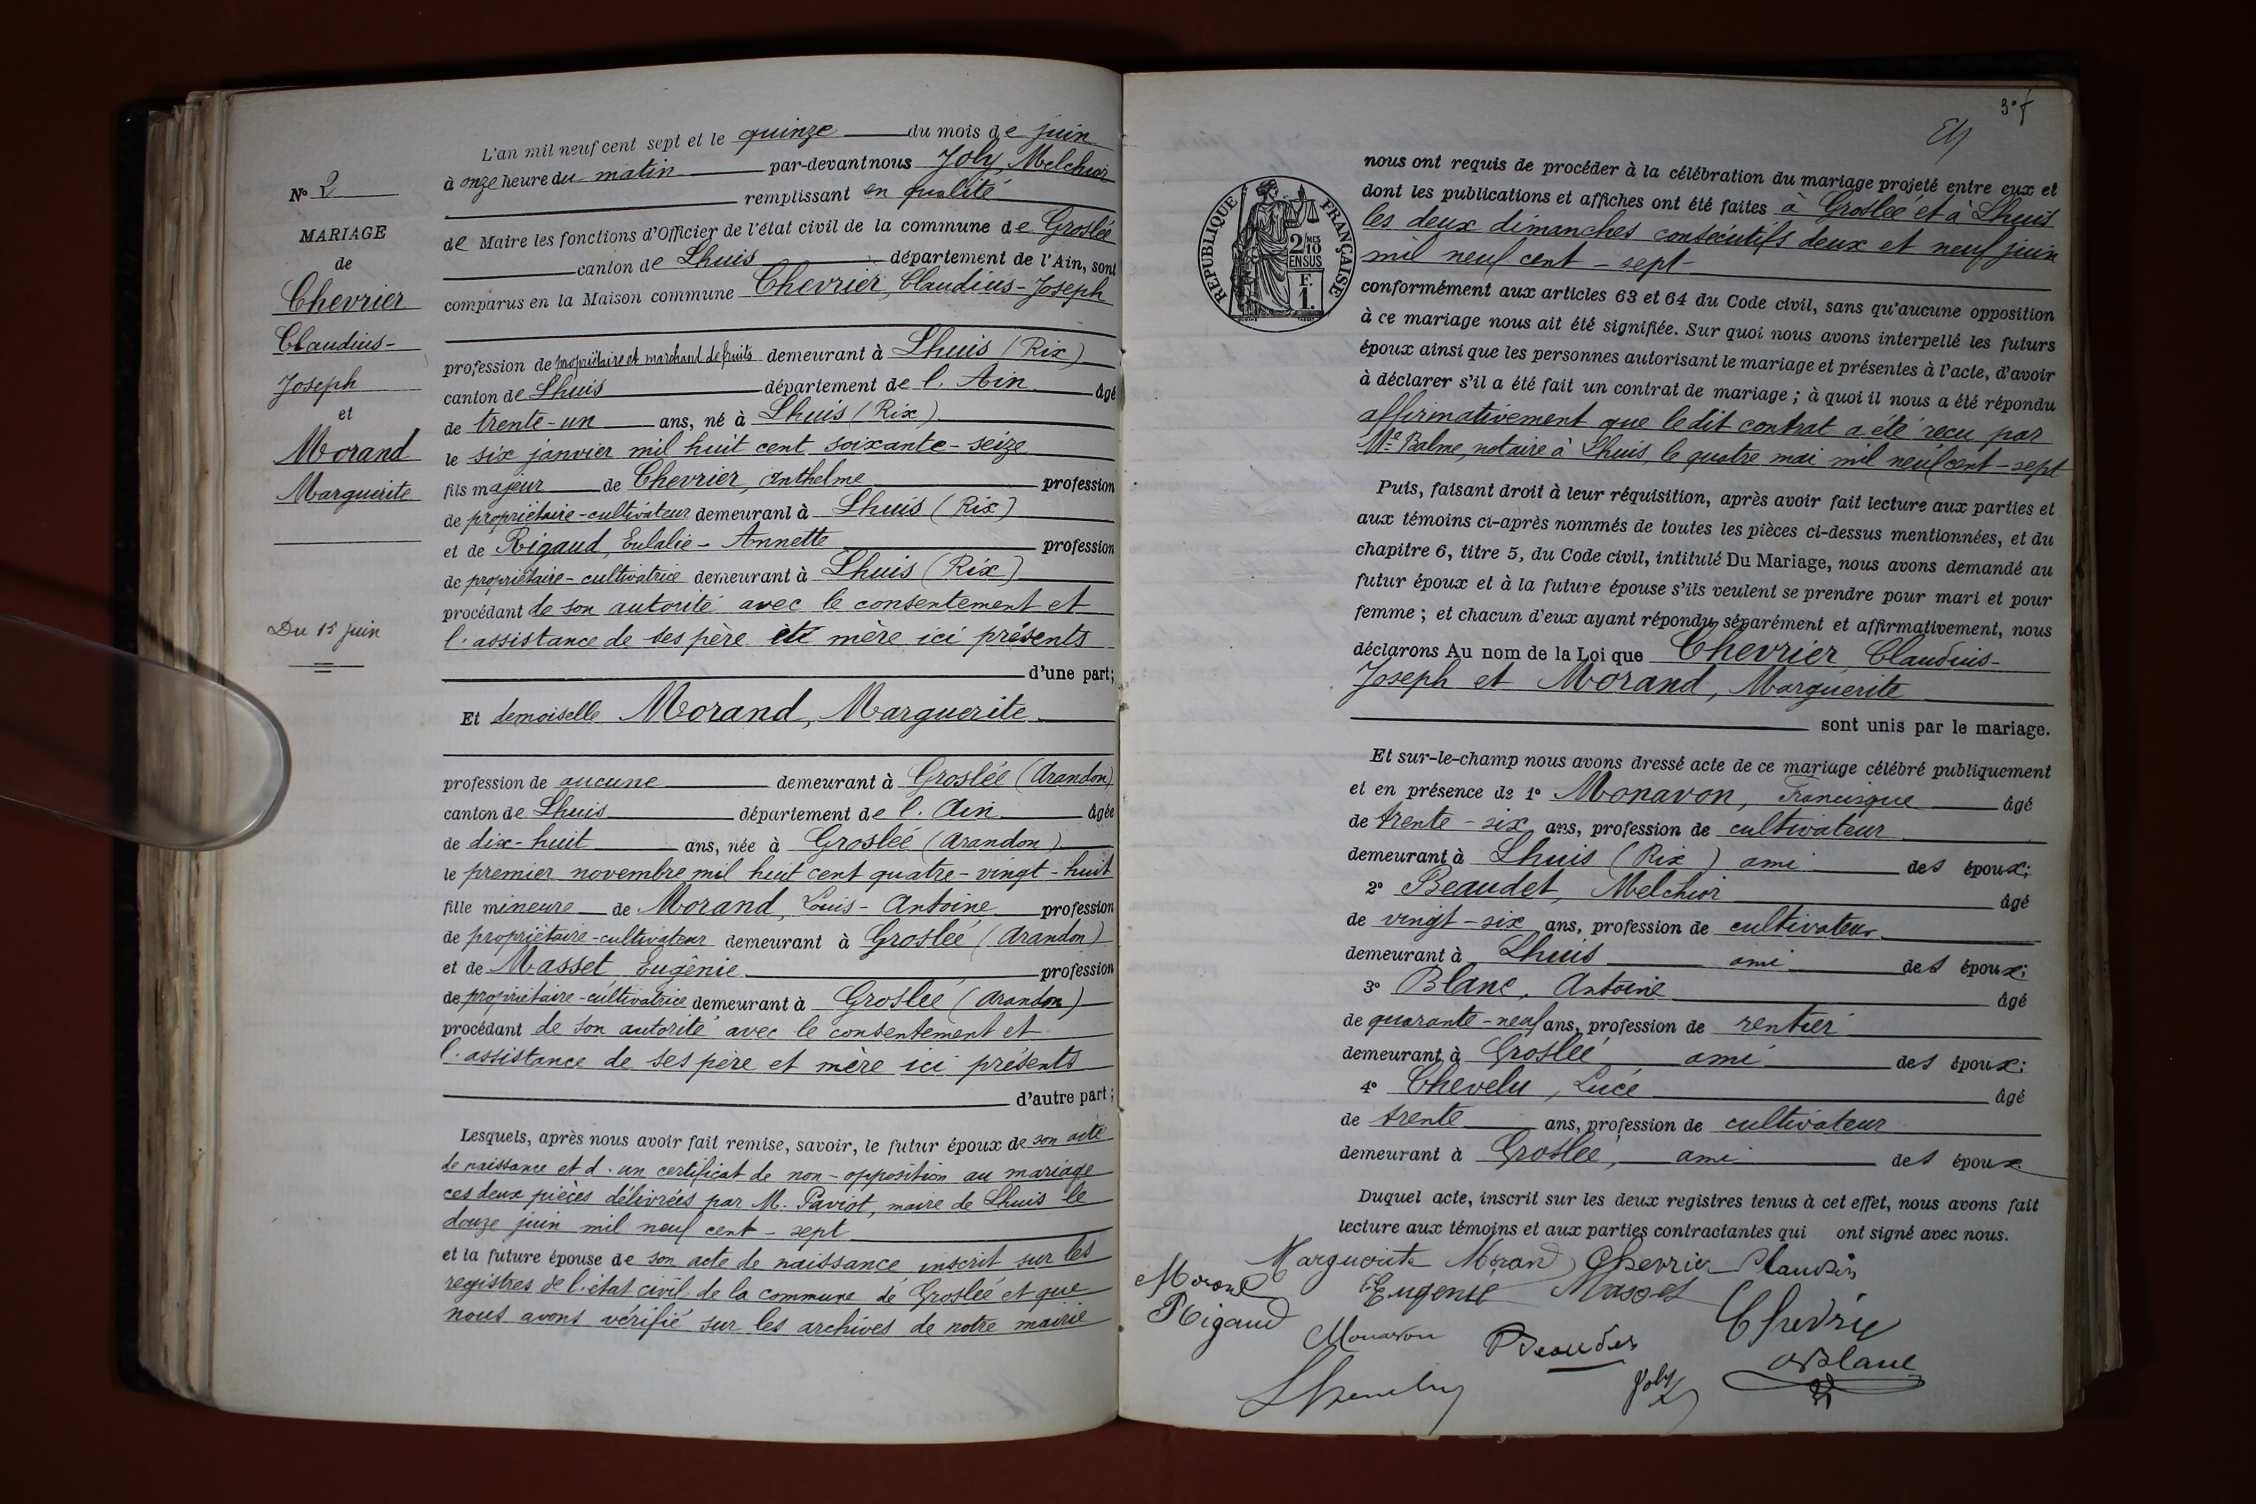 N° 2
MARIAGE
de
Chevrier
Claudius-
Joseph
et
Morand
Marguerite
Du 15 juin
L'an mil neuf cent sept et le quinze du mois de juin
à onze heure du matin par-devant nous Joly, Melchior
remplissant en qualité
de Maire les fonctions d'Officier de l'état civil de la commune de Groslée
canton de Lhuis département de l'Ain, sont
comparus en la Maison commune Chevrier, Claudius-Joseph
profession de propriétaire et marchand de fruits demeurant à Lhuis (Rix)
canton de Lhuis département de l'Ain âgé
de trente-un ans, né à Lhuis (Rix)
le six janvier mil huit cent soixante-seize
fils majeur de Chevrier, Anthelme profession
de propriétaire-cultivateur demeurant à Lhuis (Rix)
et de Rigaud, Eulalie-Annette profession
de propriétaire-cultivatrice demeurant à Lhuis (Rix)
procédant de son autorité avec le consentement et
l'assistance de ses père et mère ici présents
d'une part;
Et demoiselle Morand, Marguerite
profession de aucune demeurant à Groslée (Arandon)
canton de Lhuis département de l'Ain âgée
de dix-huit ans, née à Groslée (Arandon)
le premier novembre mil huit cent quatre-vingt-huit
fille mineure de Morand, Louis-Antoine profession
de propriétaire-cultivateur demeurant à Groslée (Arandon)
et de Masset Eugènie profession
de propriétaire-cultivatrice demeurant à Groslée (Arandon)
procédant de son autorité avec le consentement et
l'assistance de ses père et mère ici présents
d'autre part;
Lesquels, après nous avoir fait remise, savoir, le futur époux de son acte
de naissance et d'un certificat de non-opposition au mariage
ces deux pièces délivrées par M. Paviot, maire de Lhuis le
douze juin mil neuf cent-sept
et la future épouse de son acte de naissance inscrit sur les
registres de l'état civil de la commune de Groslée et que
nous avons vérifié sur les archives de notre mairie
3e f
RÉPUBLIQUE FRANÇAISE
2/10 MES
EN SUS
F.
1.
nous ont requis de procéder à la célébration du mariage projeté entre eux et
dont les publications et affiches ont été faites à Groslée et à Lhuis
les deux dimanches consécutifs deux et neuf juin
mil neuf cent-sept-
conformément aux articles 63 et 64 du Code civil, sans qu'aucune opposition
à ce mariage nous ait été signifiée. Sur quoi nous avons interpellé les futurs
époux ainsi que les personnes autorisant le mariage et présentes à l'acte, d'avoir
à déclarer s'il a été fait un contrat de mariage ; à quoi il nous a été répondu
affirmativement que le dit contrat a été reçu par
Me Balme, notaire à Lhuis, le quatre mai mil neuf cent-sept
Puis, faisant droit à leur réquisition, après avoir fait lecture aux parties et
aux témoins ci-après nommés de toutes les pièces ci-dessus mentionnées, et du
chapitre 6, titre 5, du Code civil, intitulé Du Mariage, nous avons demandé au
futur époux et à la future épouse s'ils veulent se prendre pour mari et pour
femme ; et chacun d'eux ayant répondu séparément et affirmativement, nous
déclarons Au nom de la Loi que Chevrier, Claudius-
Joseph et Morand, Marguerite
sont unis par le mariage.
Et sur-le-champ nous avons dressé acte de ce mariage célébré publiquement
et en présence de 1° Monavon, Francisque âgé
de trente-six ans, profession de cultivateur
demeurant à Lhuis (Rix) ami des époux;
2° Beaudet, Melchior âgé
de vingt-six ans, profession de cultivateur
demeurant à Lhuis ami des époux;
3° Blanc, Antoine âgé
de quarante-neuf ans, profession de rentier
demeurant à Groslée ami des époux;
4° Chevelu, Lucé âgé
de trente ans, profession de cultivateur
demeurant à Groslée, ami des époux
Duquel acte, inscrit sur les deux registres tenus à cet effet, nous avons fait
lecture aux témoins et aux parties contractantes qui ont signé avec nous.
Marguerite Morand Chevrier Claudius
Morand Eugenie Masset
Rigaud Chevrier
Monavon Beaudet ABlanc
LChevelu Joly